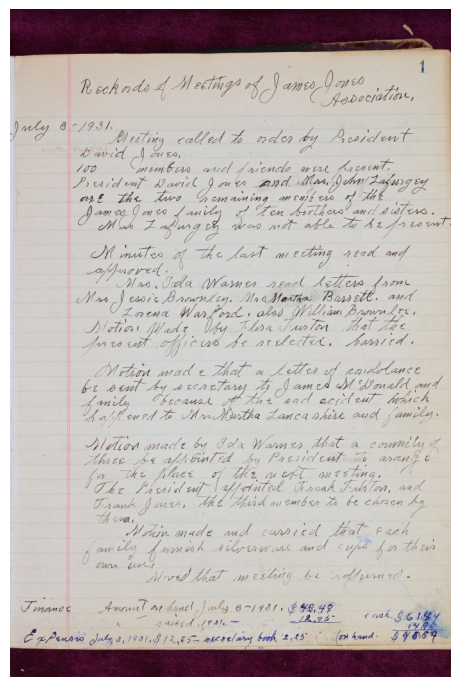 1
Reckords of Meetings of James Jones
Association,
July 8-1931.
Meeting called to order by President
David Jones.
100 members and friends were present.
President David Jones and Mrs. John Lafurgey
are the two remaining members of the
James Jones family of ten brothers and sisters.
Mrs Lafurgey was not able to be present.
Minutes of the last meeting read and
approved.
Mrs. Ida Warner read letters from
Mrs Jessie Brownley. Mrs Martha Bassett. and
Lorena Warford. also William Brownlee.
Motion Made by Flora Furston that the
present officers be reelected. Carried.
Motion made that a letter of condolance
be sent by secretary to James McDonald and
family because of the sad acident which
happened to Mr. Martha Lancashire and family.
Motion made by Ida Warner that a commity of
three be appointed by President to arange
for the place of the next meeting.
The President appointed Frank Furston, and
Frank Jones. the third member to be chosen by
them.
Motion made and carried that each
family furnish silverware and cups for their
own use.
Moved that meeting be adjurned.
Finance Amount on hand July 8-1931. $48.49
" raised 1931.- 12.95 cash. $61.44
Expenses July 8, 1931, $12.65 - secretary book 2.25 on hand.